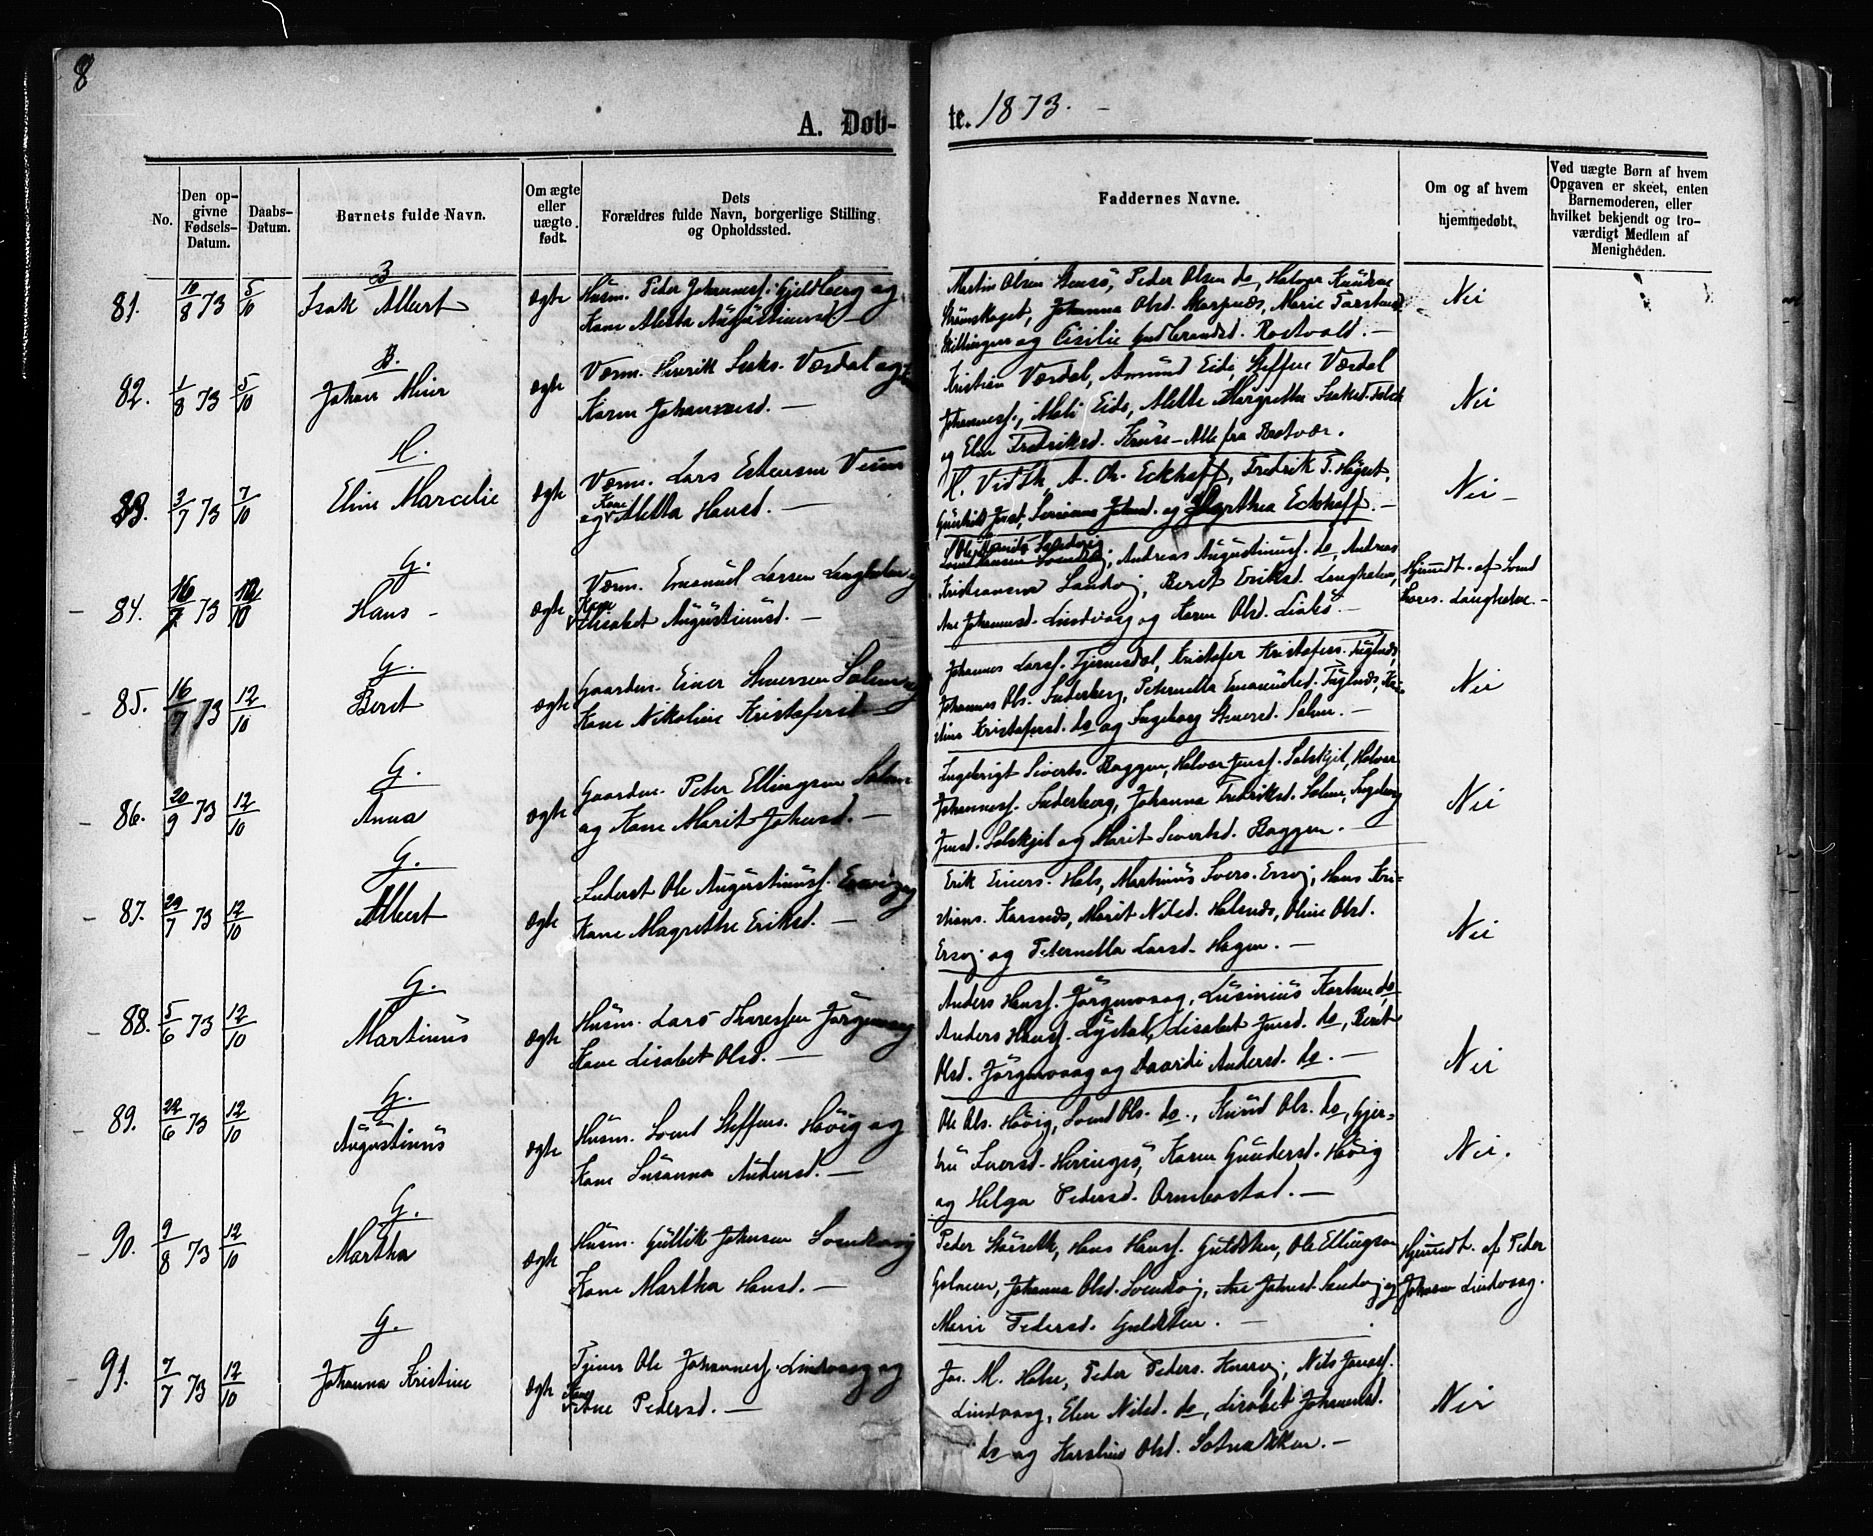 8
A. Døb-
te. 1873.
No.
Den op-
givne
Fødsels-
Datum.
Daabs-
Datum.
Barnets fulde Navn.
Om ægte
eller
uægte
født.
Dets
Forældres fulde Navn, borgerlige Stilling
og Opholdssted.
Faddernes Navne.
Om og af hvem
hjemmedøbt.
Ved uægte Børn af hvem
Opgaven er skeet, enten
Barnemoderen, eller
hvilket bekjendt og tro-
værdigt Medlem af
Menigheden.
81. 10/8 73 5/10 Isak Albert ægte Husm. Peder Johanness. Gjeldberg og
Kone Aletta Augustinusd. —
Martin Olsen Stensø, Peder Olsen do, Halvor Knudsen
Johanna Olsd. Marie
og Cicilie Gudbrandsd. Roetvold. —
Nei
82. B. 1/8 73 5/10 Johan Meier ægte Værm. Henrik Isaks. Værdal og
Karen Johannesd. —
Kristian Værdal, Amund Eide, Steffen Værdal
Johanness., Mali Eide, Alette Margrethe Isaksd.
og Elen Fredriksd. Kruse — Alle fra Roetvær.
Nei
83. H. 3/7 73 7/10 Eline Marcelie ægte Værm. Lars Estensen Veien
og Kone Aletta Hansd. —
H. Vidth, A. Chr. Eckhoff, Fredrik T. Høgset,
og Marthea Eckhoff. —
Nei —
84. G. 16/7 73 12/10 Hans - ægte Værm. Emanuel Larsen Langholen og
Kone Elisabet Augustinusd. —
Andreas Augustinuss. do, Andreas
Kristiansen Sandvig, Beret Eriksd. Langholen,
Ane Johannesd. Lindvaag og Karen Olsd. —
Hjemmedt. af Svend
Lars. Langholen. —
85. G. 16/7 73 12/10 Beret ægte Gaardm. Einer Steversen Solem og
Kone Nikoline Kristofersd. —
Johannes Larss. Tjernesdal, Kristofer Kristofers. Fuglnæs,
Johannes Ols. Suderberg, Peternella Emanuelsd. Fuglnæs,
Kristofersd. do og Ingeborg Steversd. Solem. —
Nei
86. G. 20/9 73 12/10 Anna ægte Gaardm. Peter Ellingsen Solem
og Kone Marit Johansd. —
Ingebrigt Siverts. Baggen, Halvor Jenss. Solskjel, Halvor
Johanness. Suderberg, Johanna Fredriksd. Solem, Ingeborg
Jensd. Solskjel og Marit Sivertsd. Baggen. —
Nei
87. G. 29/7 73 12/10 Albert ægte Inderst Ole Augustinuss. Ersvig og
Kone Magrethe Eriksd. —
Erik Einers. Hals, Martinus Ivers. Ersvig, Hans Kri-
stians. Korsnæs, Marit Nilsd. Halsnæs, Oline Olsd.
Ersvig og Peternella Larsd. Hagen. —
Nei
88. G. 5/6 73 12/10 Martinus ægte Husm. Lars Ingerssen Jørgenvaag
Kone Lisabet Olsd. —
Anders Hanss. Jørgenvaag, Lusinius Karlsen do,
Anders Hanss. Lystad, Lisabet Jensd. do, Beret
Olsd. Jørgenvaag og Andersd. do. —
Nei
89. G. 22/6 73 12/10 Augustinus ægte Husm. Svend Steffens. Høvig og
Kone Susanna Andersd. —
Ole Ols. Høvig, Svend Ols. do., Knud Ols. do, Gjer-
tru Iversd. Heringsø, Karen Gundersd. Høvig
og Helga Pedersd. Ormbostad. —
Nei.
90. G. 9/8 73 12/10 Martha ægte Husm. Gullik Johnsen Svendsvig
Kone Martha Hansd. —
Peder Størseth, Hans Hanss. Guldsten, Ole Ellingsen
Johanna Olsd. Svendsvig, Ane Johnsd. Sandvig og
Marie Pedersd. Guldsten. —
Hjemmedt. af Peder
Johnsen Lindvaag.
91. G. 7/7 73 12/10 Johanna Kristine ægte Tjener Ole Johanness. Lindvaag og
Kone Ane Pedersd. —
Joh. M. Holm, Peder Peders. Nils Jonass.
Lindvaag, Elen Nilsd. do, Lisabet Johannesd.
do og Karoline Olsd. —
Nei